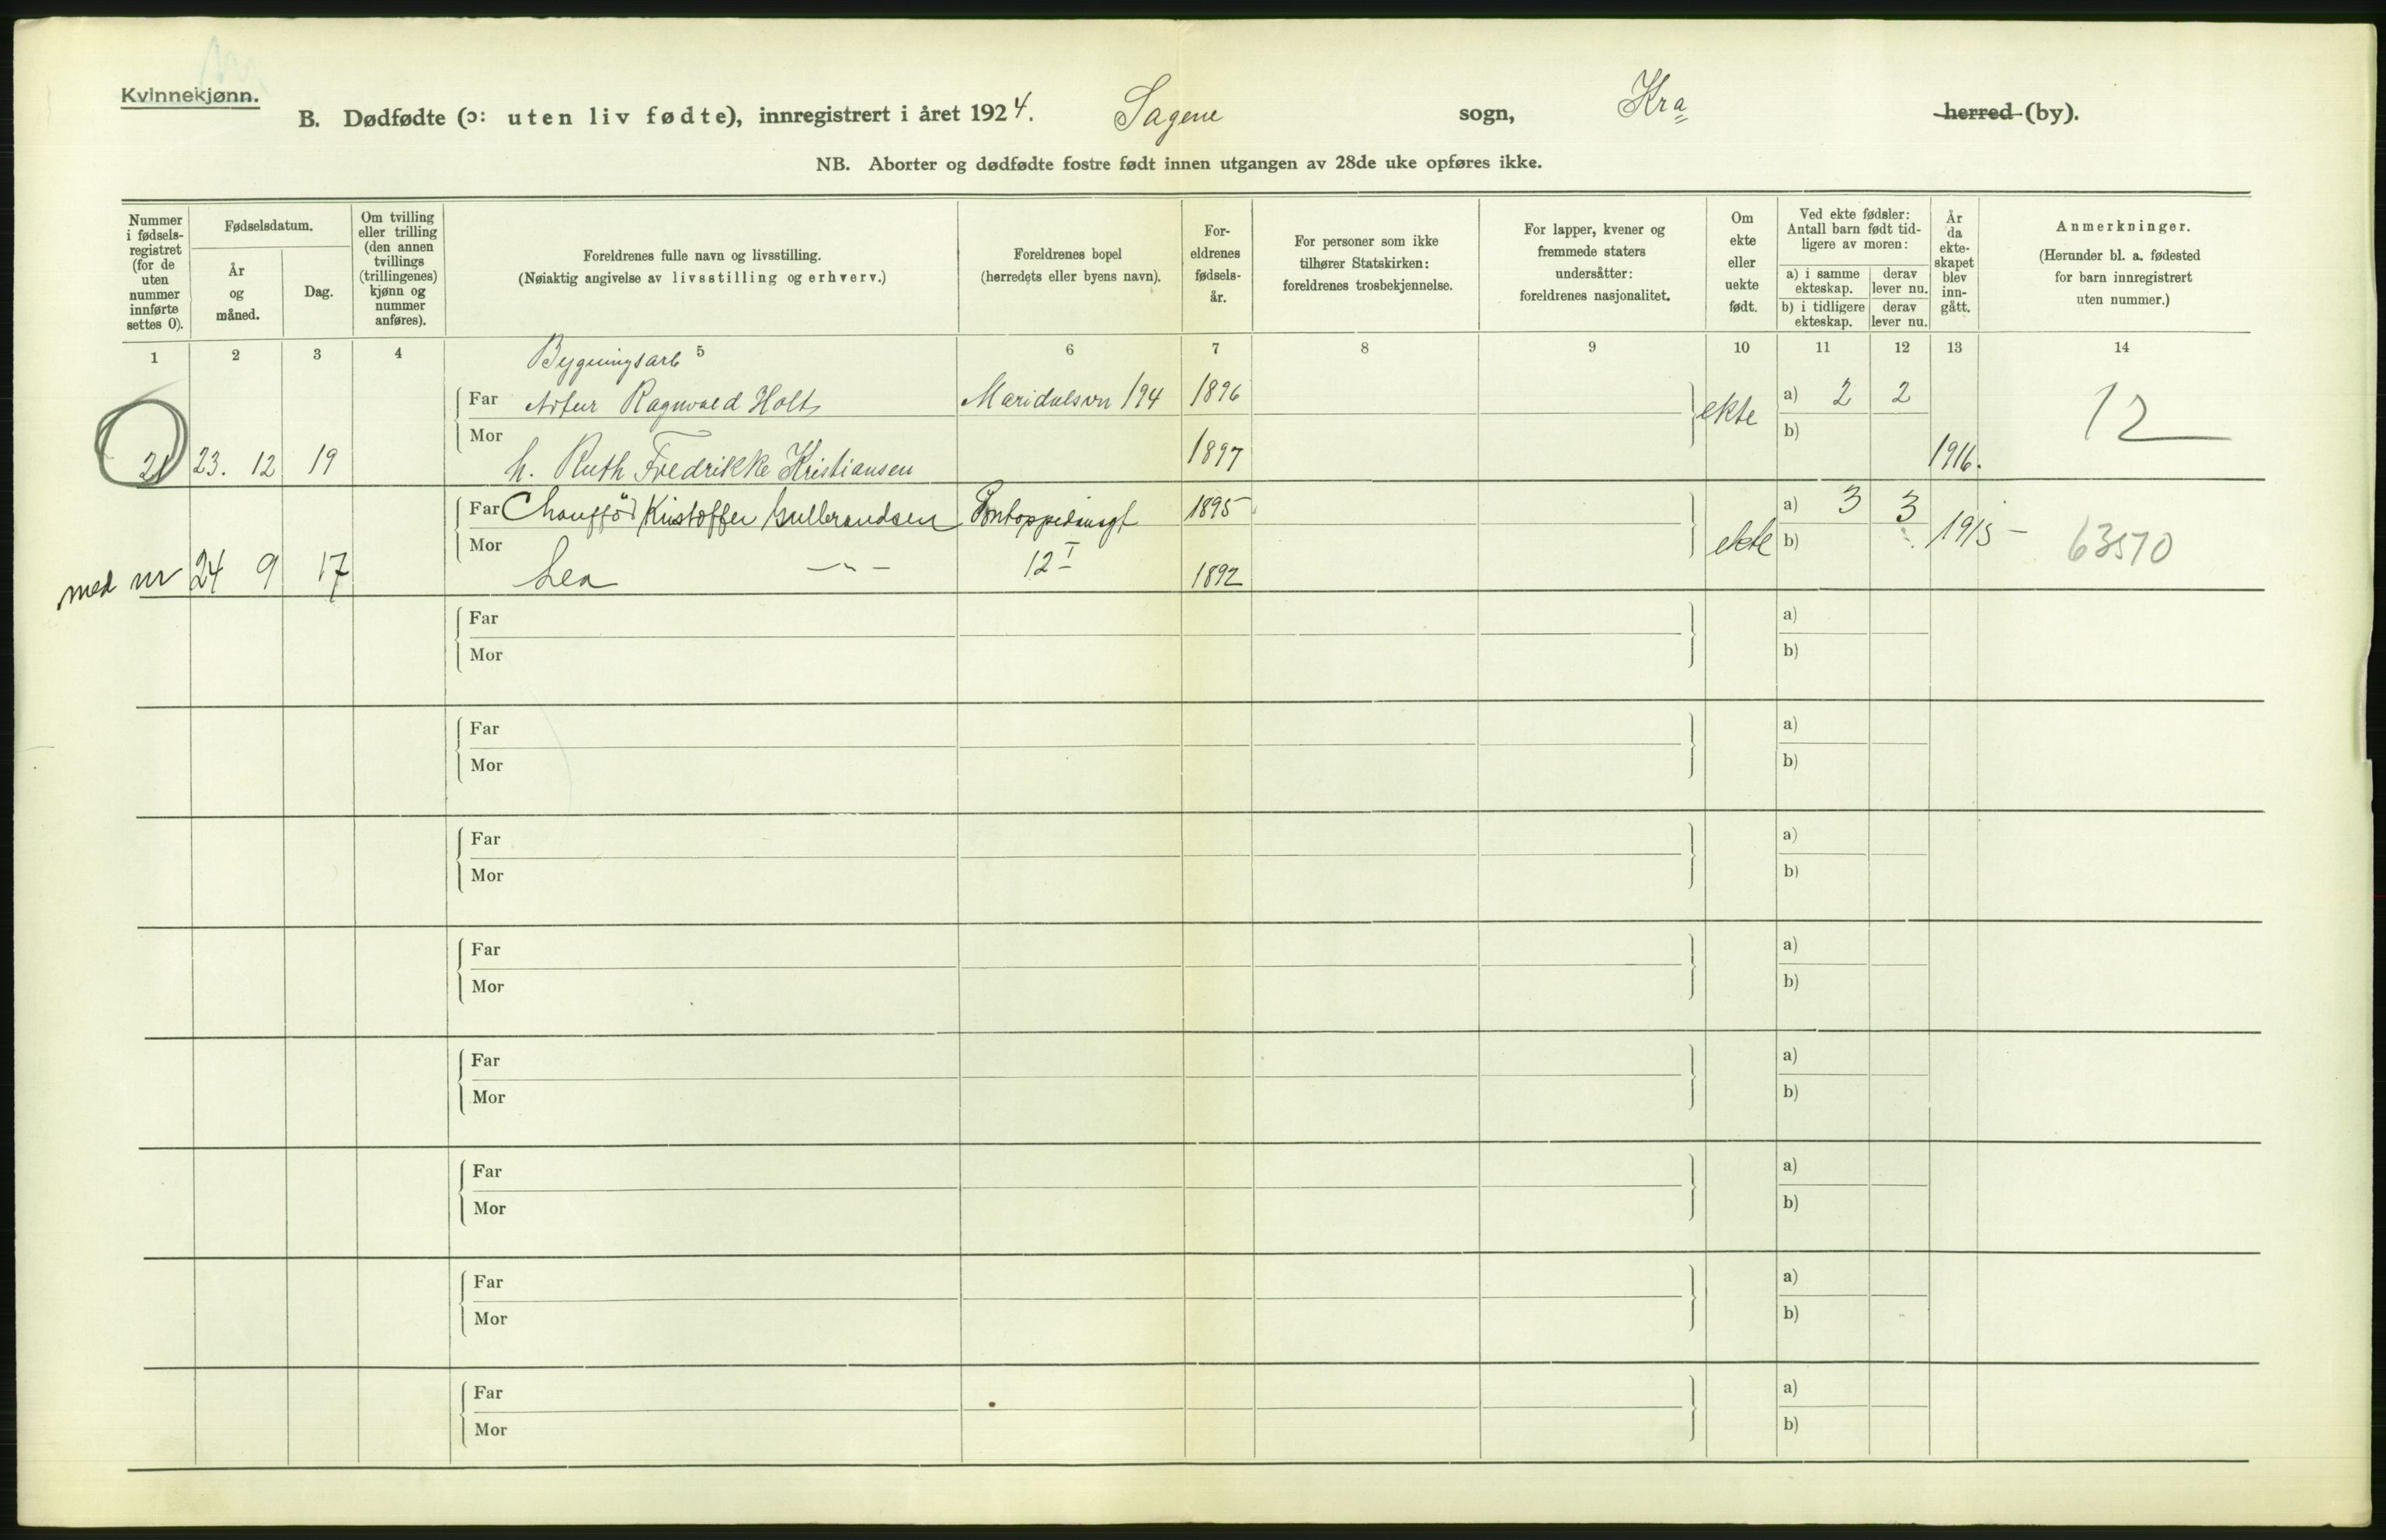 Kvinnekjønn.
B. Dødfødte (ɔ: uten liv fødte), innregistrert i året 1924. Sagene sogn, Kra herred (by).
NB. Aborter og dødfødte fostre født innen utgangen av 28de uke opføres ikke.
Nummer i fødsels-registret (for de uten nummer innførte settes 0).
Fødselsdatum.
År og måned.
Dag.
Om tvilling eller trilling (den annen tvillings (trillingenes) kjønn og nummer anføres).
Foreldrenes fulle navn og livsstilling.
(Nøiaktig angivelse av livsstilling og erhverv.)
Foreldrenes bopel
(herredets eller byens navn).
For-eldrenes fødsels-år.
For personer som ikke tilhører Statskirken: foreldrenes trosbekjennelse.
For lapper, kvener og fremmede staters undersåtter: foreldrenes nasjonalitet.
Om ekte eller uekte født.
Ved ekte fødsler: Antall barn født tid-ligere av moren:
a) i samme ekteskap. derav lever nu.
b) i tidligere ekteskap. derav lever nu.
År da ekte-skapet blev inn-gått.
Anmerkninger.
(Herunder bl. a. fødested for barn innregistrert uten nummer.)
1 2 3 4 5 6 7 8 9 10 11 12 13 14
Bygningsarb
Far Artur Ragnvald Holt Maridalsvn 194 1896 ekte a) 2 2 12
Mor b)
21 23. 12 19 h. Ruth Fredrikke Kristiansen 1897 1916.
Far Chauffør Kristoffer Gulbrandsen Pontoppidansgt 1895 a) 3 3
Mor ekte b) 1915 63570
med nr 24 9 17 Lea — " — 12 I 1892
Far a)
Mor b)
Far a)
Mor b)
Far a)
Mor b)
Far a)
Mor b)
Far a)
Mor b)
Far a)
Mor b)
Far a)
Mor b)
Far a)
Mor b)